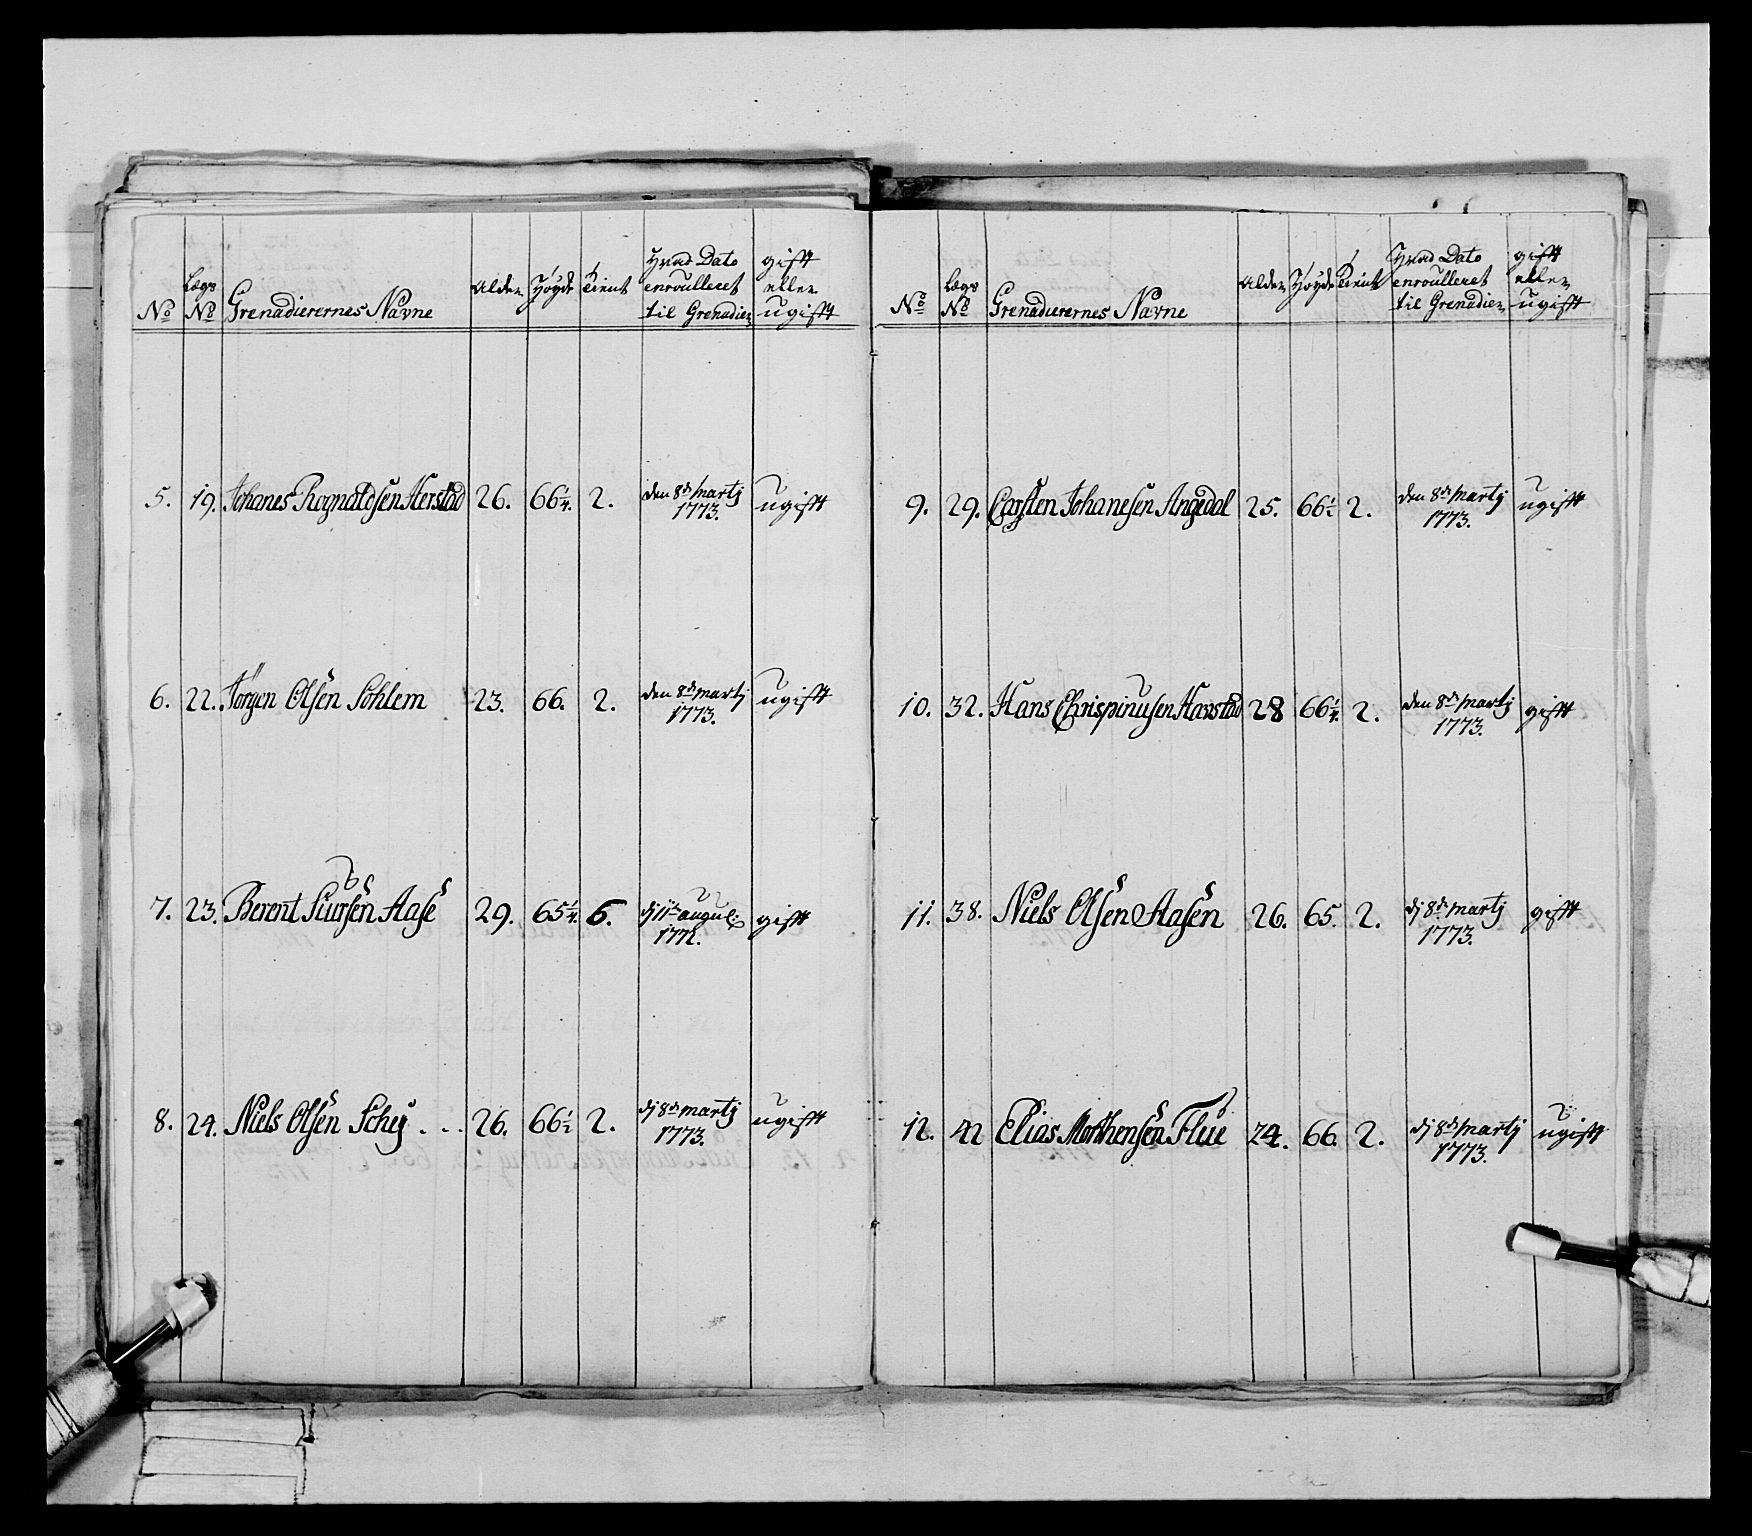 No | Lægs No | Grenadierernes Navne | Alder | Høyde | Tient | Hvad Dato enroulleret til Grenadier | gift eller ugift
5. | 19. | Johanes Ragnaldsen Aerstad | 26. | 66 1/4. | 2. | den 8de Martj 1773. | ugift
6. | 22. | Jørgen Olsen Sohlem | 23. | 66. | 2. | den 8de Martj 1773. | ugift
7. | 23. | Berent Siursen Aase | 29. | 65 1/4. | 6. | dj 11te august 1772. | gift
8. | 24. | Niels Olsen Schey . . . | 26. | 66 1/2 | 2. | dj 8de Martj 1773. | ugift
No | Lægs No | Grenadierernes Navne | Alder | Høyde | Tient | Hvad Dato enroulleret til Grenadier | gift eller ugift
9. | 29. | Carsten Johanesen Angedal | 25. | 66 1/2 | 2. | den 8de Martj 1773. | ugift
10. | 32. | Hans Chrispinusen Havstad | 28 | 66 1/4. | 2. | den 8de Martj 1773. | gift
11. | 38. | Niels Olsen Aasen | 26. | 65. | 2. | dj 8de Martj 1773. | gift
12. | 42 | Elias Morthensen Flue | 24. | 66. | 2. | dj 8de Martj 1773. | ugift